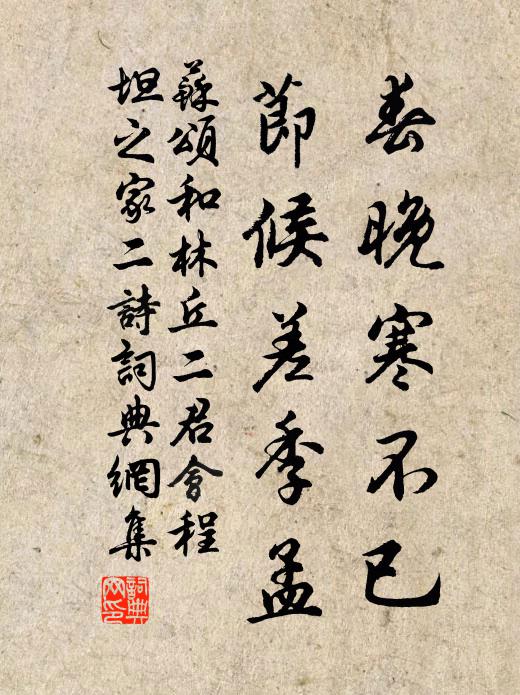 春晚寒不已
節候差季孟
蘇頌和林丘二君會程
坦之家二詩詞典網集
詞典網印